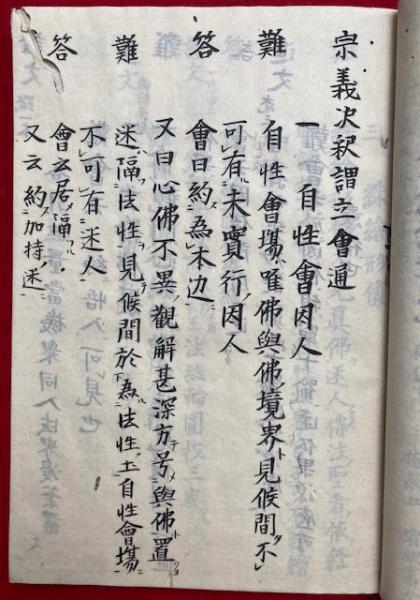 宗義次釈謂立會通
一自性會因人
難 自性會場ハ唯佛與佛ノ境界ト見候間不
可有未實行ノ因人
答 會曰約為本边
又曰心佛不異ノ觀解甚深方号與佛置
難 迷ハ隔法性ヲ見候間於為法性土自性會場ニ
不可有迷人
答 會云居隔ハ
又云約加持迷ニ